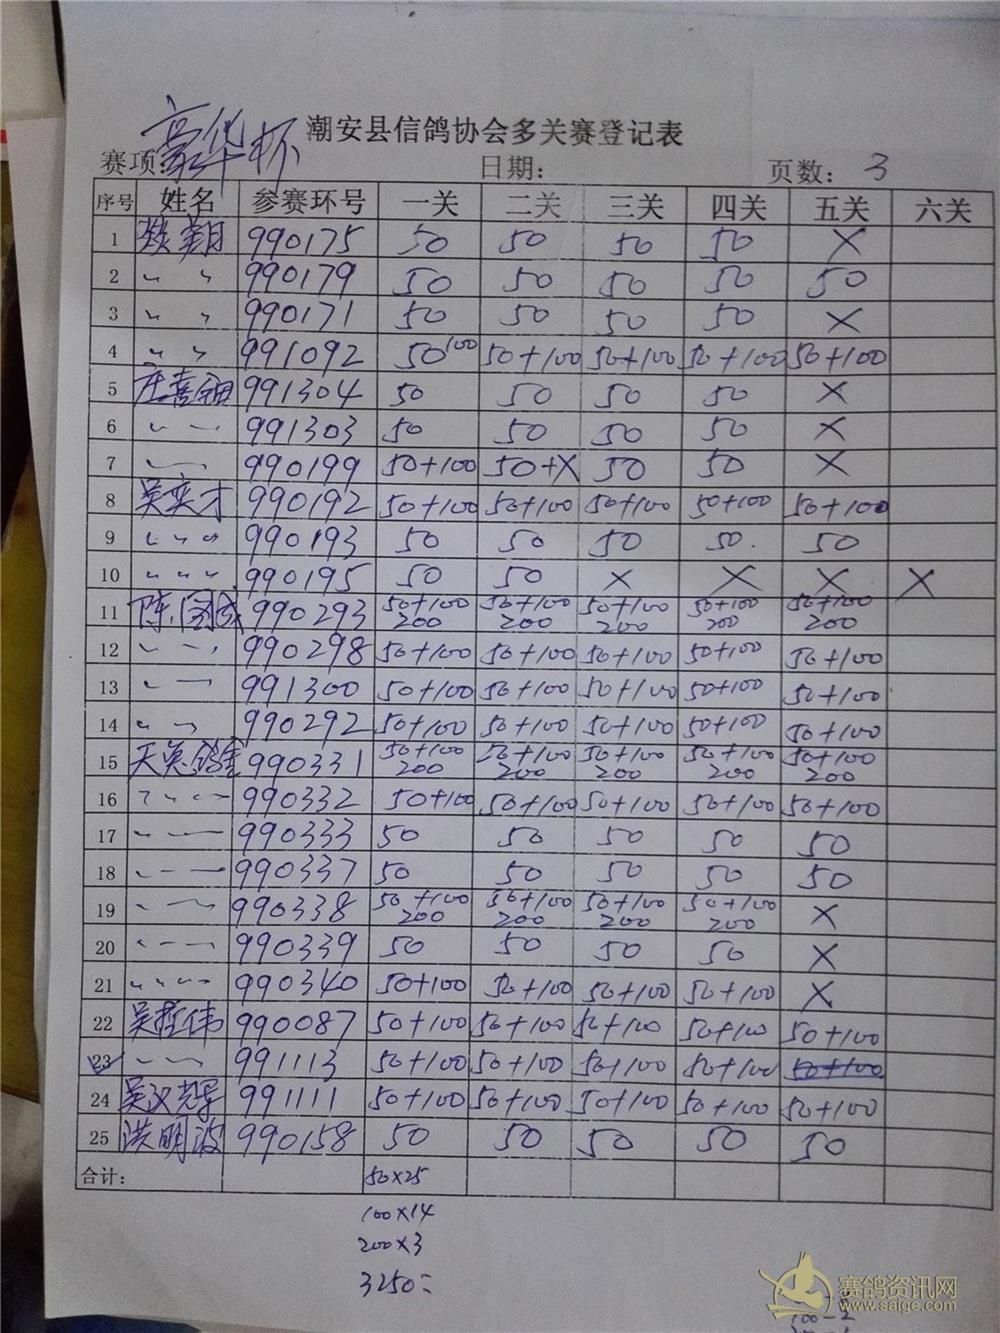 潮安县信鸽协会多关赛登记表
赛项 豪华杯 日期： 页数：3
序号 姓名 参赛环号 一关 二关 三关 四关 五关 六关
1 990175 50 50 50 50 ×
2 〃 〃 990179 50 50 50 50 50
3 〃 〃 990171 50 50 50 50 ×
4 〃 〃 991092 50 100 50+100 50+100 50+100 50+100
5 991304 50 50 50 50 ×
6 〃 〃 991303 50 50 50 50 ×
7 〃 990199 50+100 50+× 50 50 ×
8 吴奕才 990192 50+100 50+100 50+100 50+100 50+100
9 〃 〃 〃 990193 50 50 50 50. 50
10 〃 〃 〃 990195 50 50 × × × ×
11 陈国成 990293 50+100 50+100 50+100 50+100 50+100
200 200 200 200 200
12 〃 〃 990298 50+100 50+100 50+100 50+100 50+100
13 〃 〃 991300 50+100 50+100 50+100 50+100 50+100
14 〃 〃 990292 50+100 50+100 50+100 50+100 50+100
15 天英鸽舍 990331 50+100 50+100 50+100 50+100 50+100
200 200 200 200 200
16 〃 〃 〃 990332 50+100 50+100 50+100 50+100 50+100
17 〃 〃 990333 50 50 50 50 50
18 〃 〃 990337 50 50 50 50 50
19 〃 〃 990338 50+100 50+100 50+100 50+100 ×
200 200 200 200
20 〃 〃 〃 990339 50 50 50 50 ×
21 〃 〃 〃 990340 50+100 50+100 50+100 50+100 ×
22 吴哲伟 990087 50+100 50+100 50+100 50+100 50+100
23 〃 〃 991113 50+100 50+100 50+100 50+100 50+100
24 吴汉 991111 50+100 50+100 50+100 50+100 50+100
25 洪明波 990158 50 50 50 50 50
合计： 50×25
100×14
200×3
3250=
赛鸽资讯网
www.saige.com
100-2